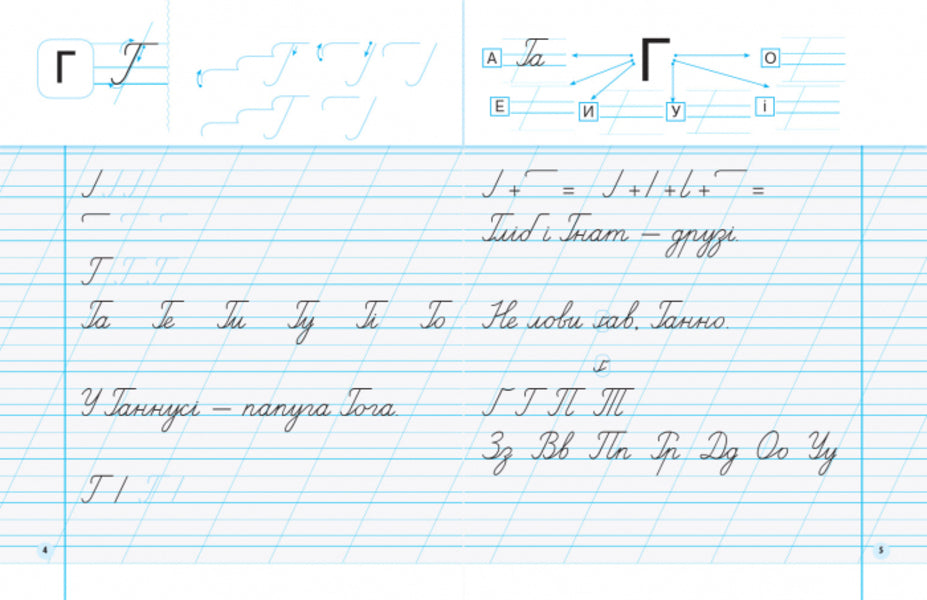 Г Г
А Га Г О
Е И У і
Г
Га Ге Ги Гу Гі Го
У Ганнусі — папуга Гога.
Г /
4
+ =   + + + =
Гліб і Гнат — друзі.
Не лови ґав, Ганно.
г
Г Т П Т
Зз Вв Пп Гг Дд Оо Уу
5